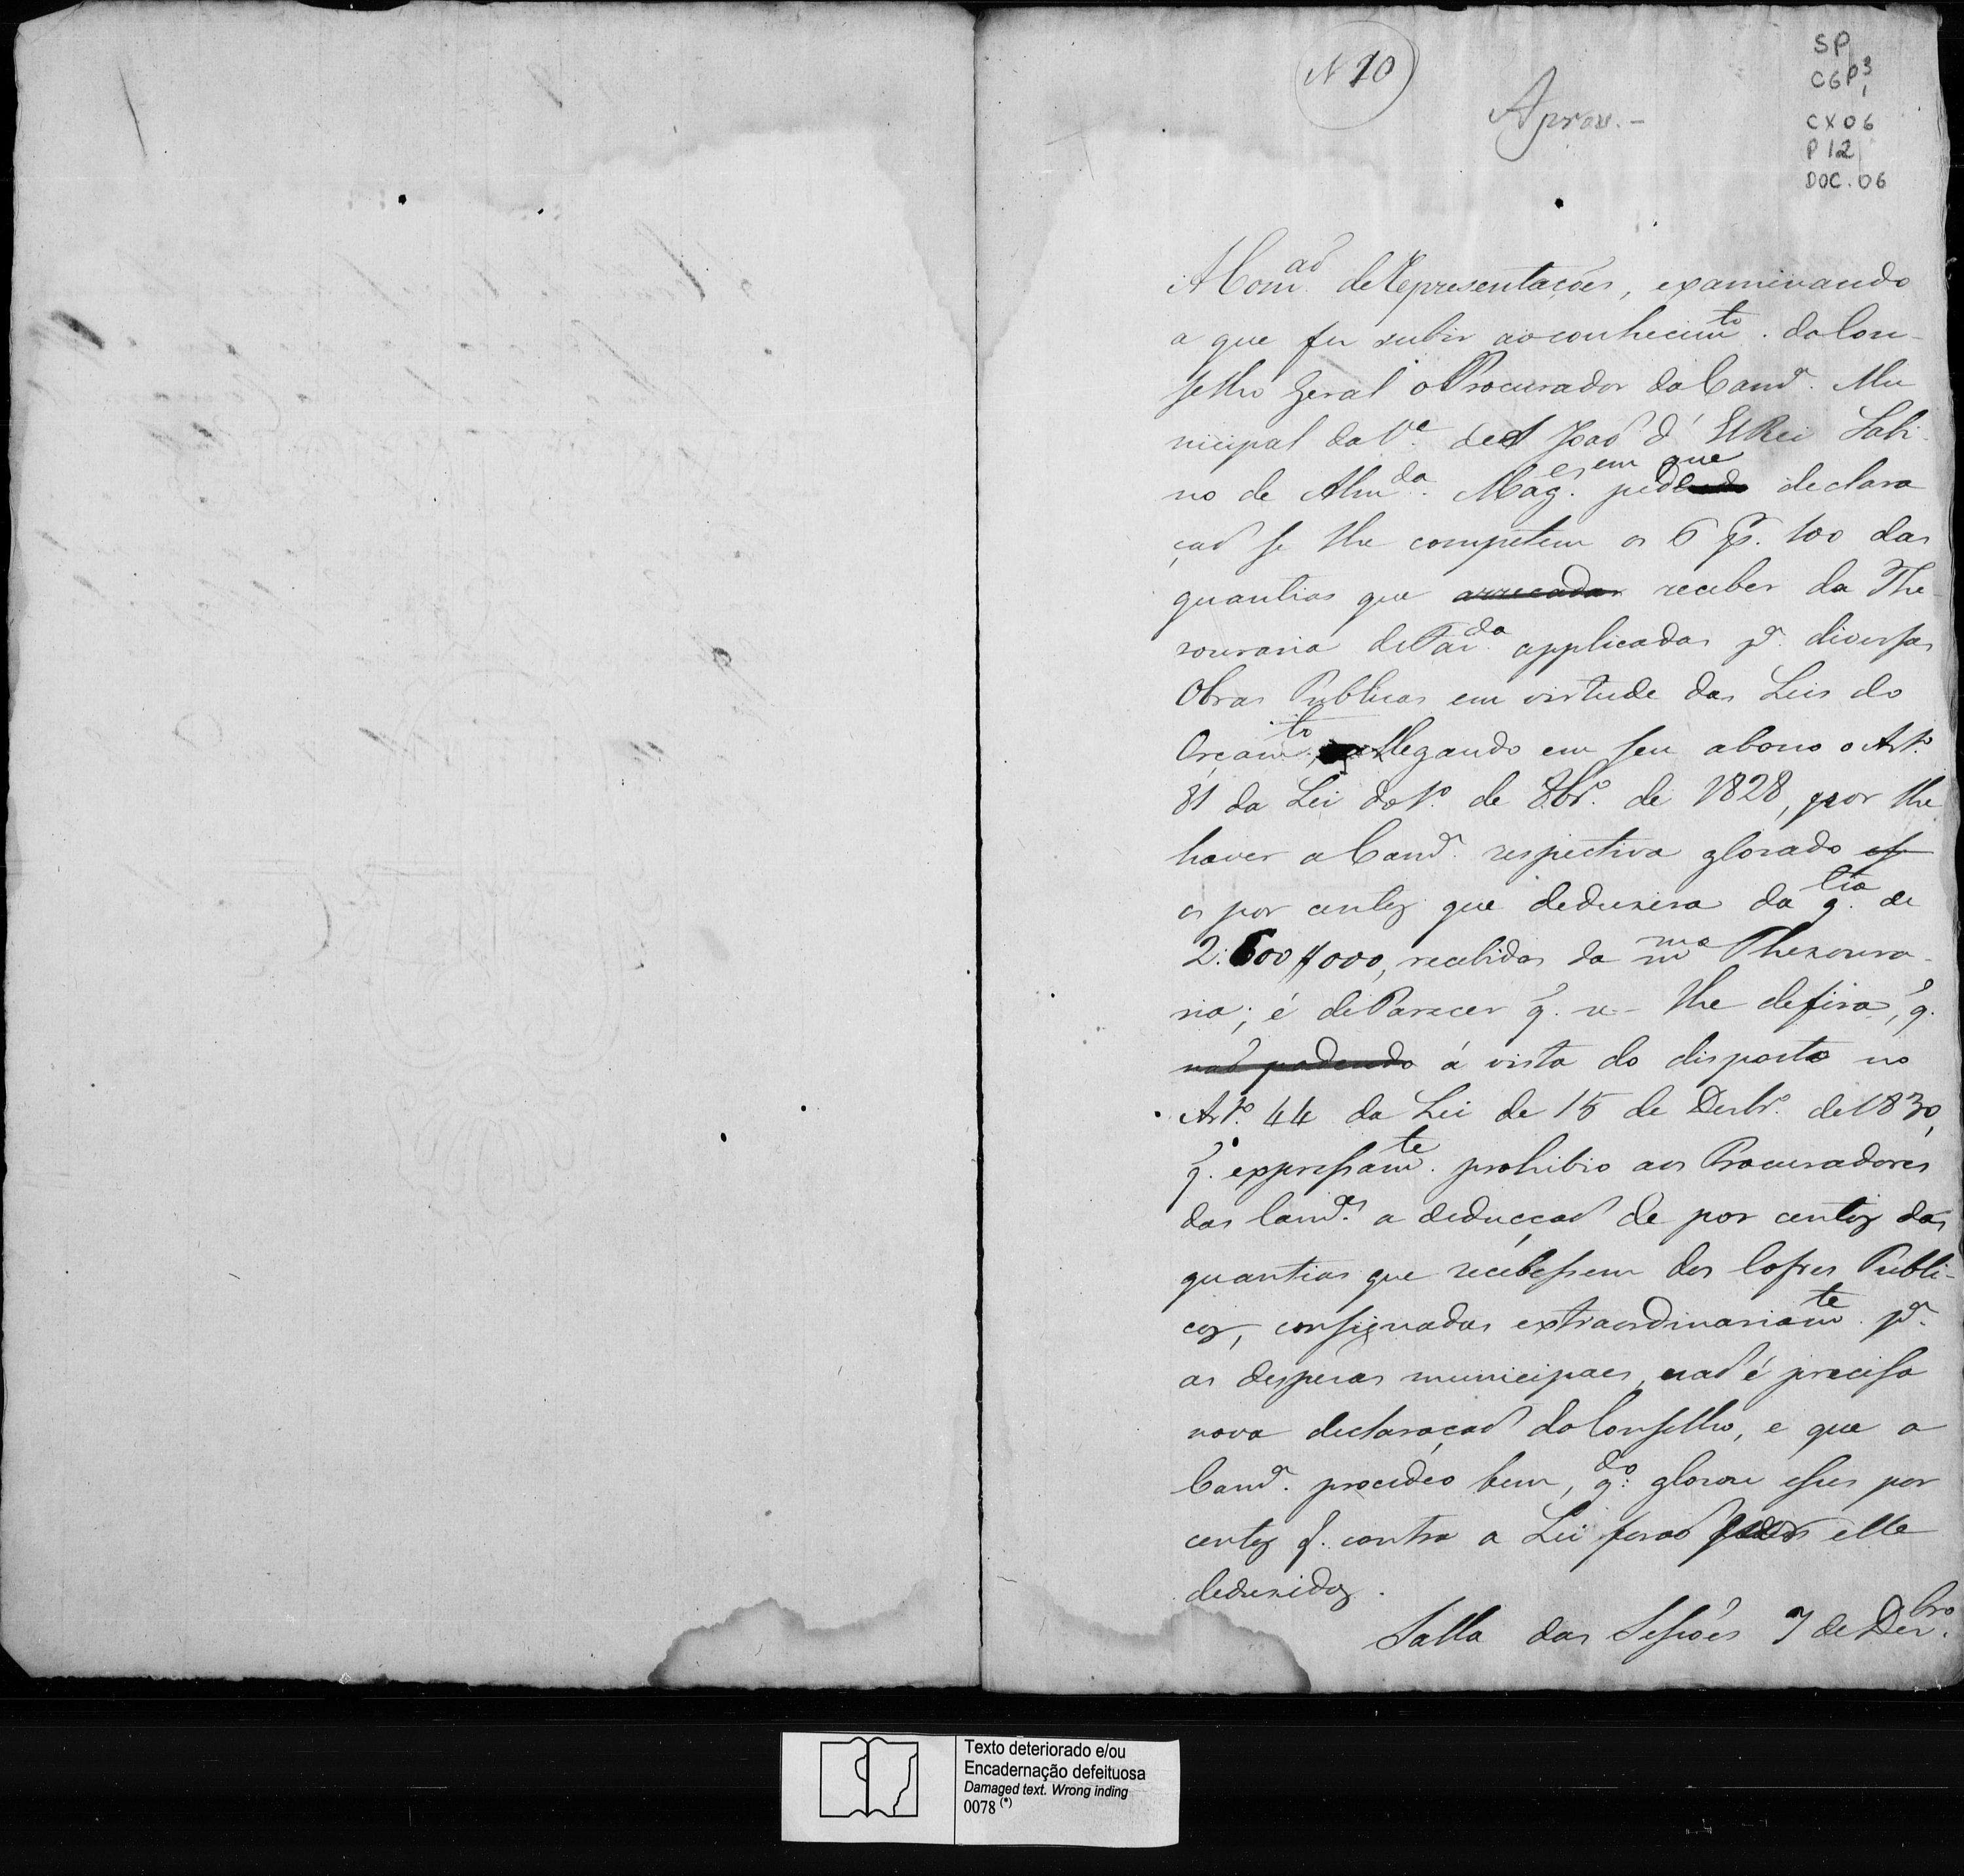 N 10
Aprov. -
SP
CGP 3
1
CX 06
P 12
DOC. 06
A Com.ão de Representações, examinando
a que fez subir ao conhecim.to do Con-
selho Geral o Procurador da Cam.ª Mu
nicipal da V.ª de S João d' ElRei Sabi-
no de Alm.da Mag.es em que pede declara
ção se lhe competem os 6 p.r 100 das
quantias que arrecadar receber da The
souraria de Faz.da applicadas p.ª diversas
Obras Publicas em virtude das Leis do
Orçam.to, allegando em seu abono o Art.o
81 da Lei do 1.o de 8br.o de 1828, por lhe
haver a Cam.ª respectiva glosado
os por centos que deduzira da q.tia de
2:600$000, recebidos da m.ma Thesoura-
ria; é de Parecer q. se lhe defira, q.
não podendo á vista do disposto no
Art.o 44 da Lei de 15 de Dezbr.o de 1830,
q. expressam.te prohibio aos Procuradores
das Cam.as a deducção de por centos das
quantias que recebessem dos Cofres Publi-
cos, consignadas extraordinariam.te p.ª
as despezas municipaes, não é precisa
nova declaração do Conselho, e que a
Cam.ª procedeo bem, q.do glosou esses por
centos q. contra a Lei forão por elle
deduzidos.
Salla das Sessões 7 de Dez.bro
Texto deteriorado e/ou
Encadernação defeituosa
Damaged text. Wrong inding
0078 (*)